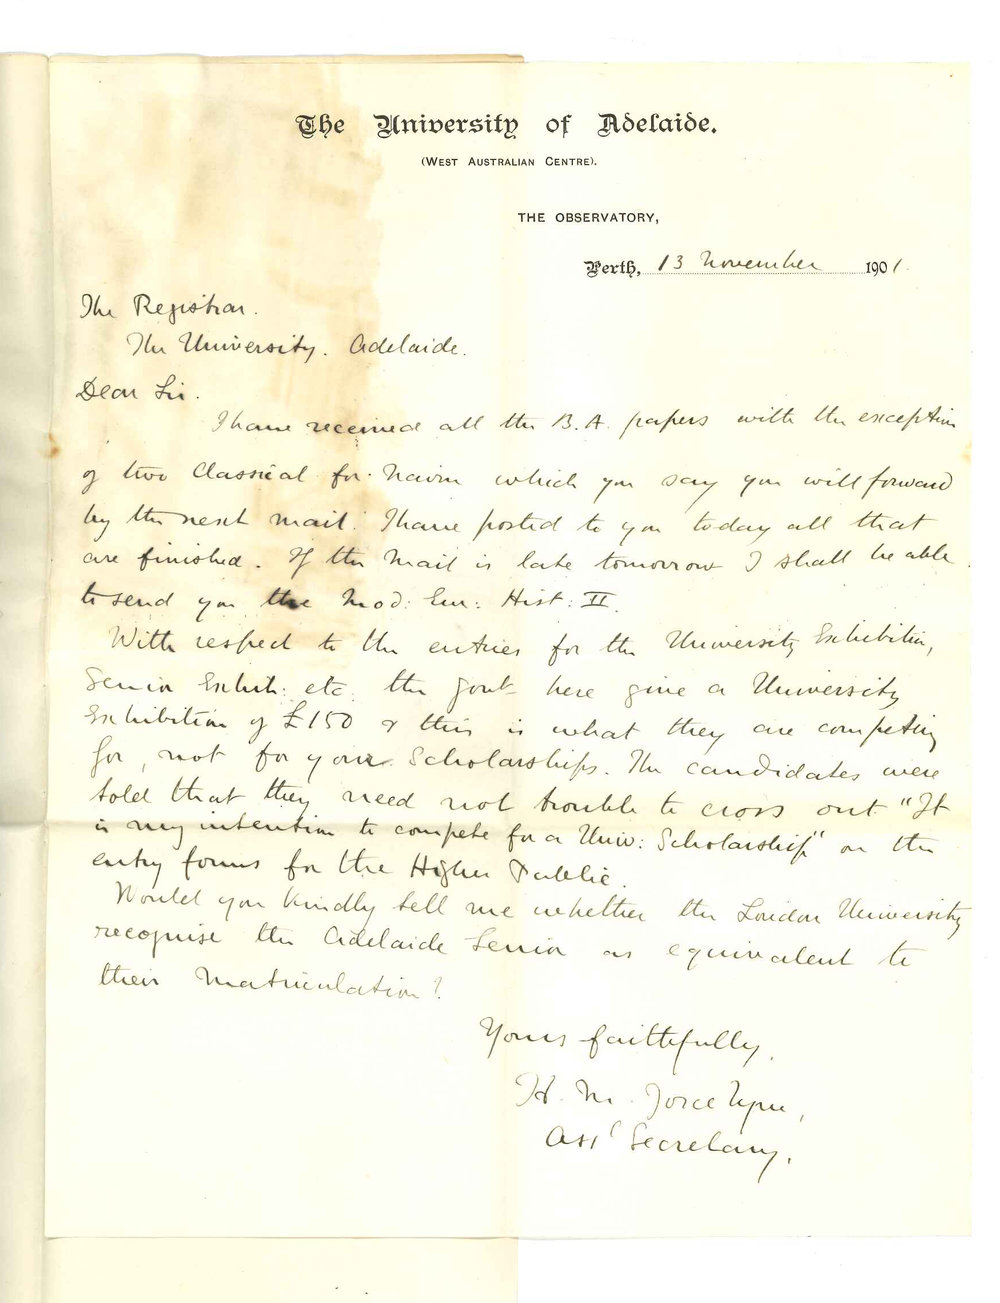 The University of Adelaide.
(WEST AUSTRALIAN CENTRE).
THE OBSERVATORY,
Perth, 13 November 1901.
The Registrar.
The University. Adelaide.
Dear Sir.
I have received all the B.A. papers with the exception
of two Classical for which you say you will forward
by the next mail. I have posted to you today all that
are finished. If the Mail is late tomorrow I shall be able
to send you the Mod: Eur: Hist: II.
With respect to the entries for the University Exhibition,
Senior Exhib: etc. the Govt here give a University
Exhibition of £150 & this is what they are competing
for, not for your Scholarships. The candidates were
told that they need not trouble to cross out "It
is my intention to compete for a Univ: Scholarship" on the
entry forms for the Higher Public.
Would you kindly tell me whether the London University
recognise the Adelaide Senior as equivalent to
their Matriculation?
Yours faithfully,
H. M.
Asst Secretary.